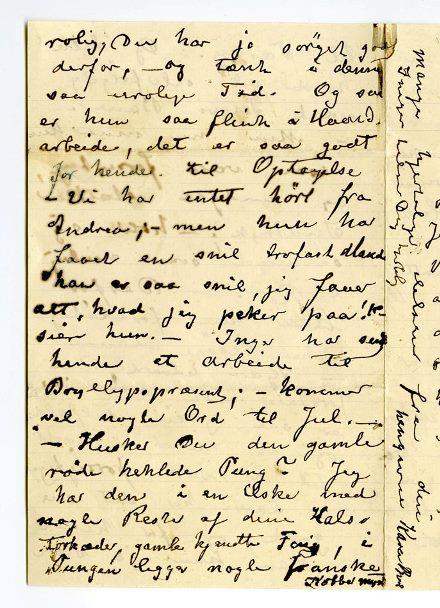 rolig, Du har jo sørget godt
derfor, – og tænk i denne
saa urolige Tid. Og saa
er hun saa flink i Haand-
arbeide, det er saa godt
for hende til Optagelse
– Vi har intet hört fra
Andrea; – men hun har
faaet en snil trofast Mand
han er saa snil, jeg faaer
alt, hvad jeg peker paa!
sier hun. – Inga har
hende et arbeide til
Bryllypspræsent; – kommer
vel nogle Ord til Jul. –
– Husker Du den gamle
røde heklede Pung? Jeg
har den i en Æske med
nogle Reste af dine Hals-
tørklæder, gamle kjendte Töig, i
Pungen ligger nogle franske
Kobbermynt
Mange hjertelige hilsener fra din